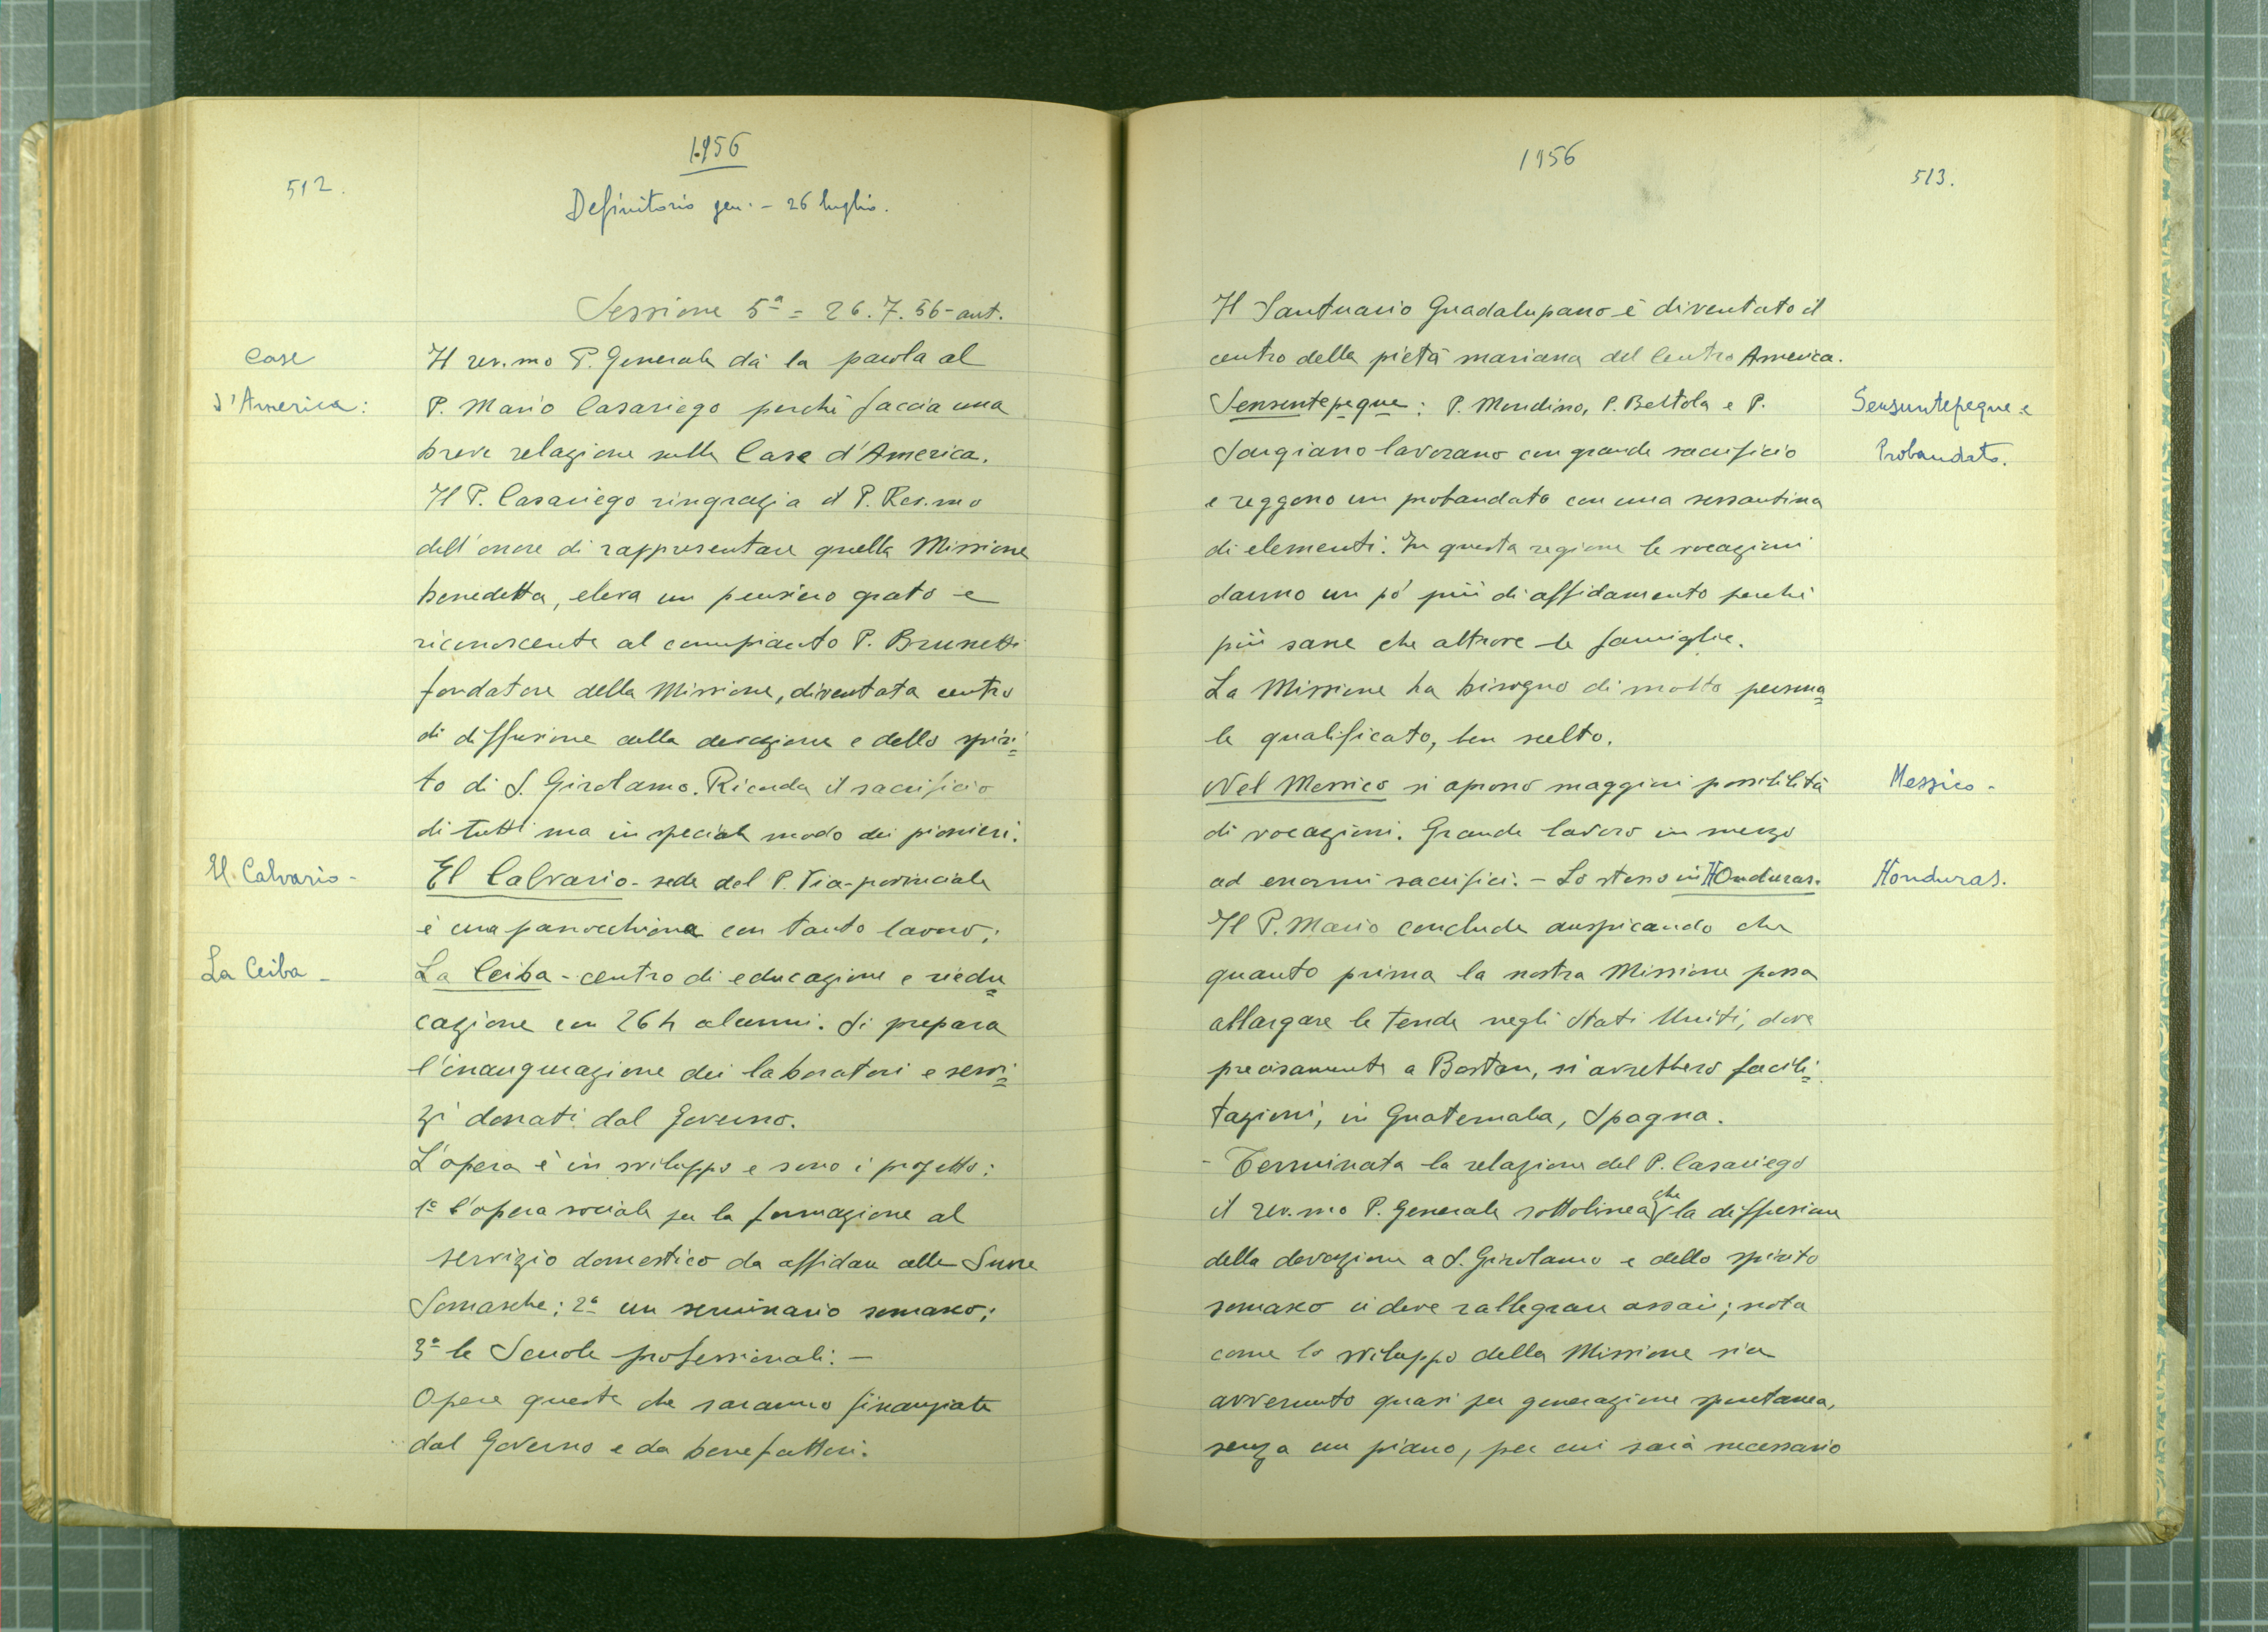 512.
1956
Definitorio gen. - 26 luglio.
Sessione 5ª = 26.7.56 - ant.
Case
d'America:
Il rev.mo P. Generale dà la parola al
P. Mario Casariego perché faccia una
breve relazione sulle Case d'America.
Il P. Casariego ringrazia il P. Rev.mo
dell'onore di rappresentare quella Missione
benedetta, eleva un pensiero grato e
riconoscente al compianto P. Brunetti
fondatore della Missione, diventata centro
di diffusione della devozione e dello spiri=
to di S. Girolamo. Ricorda il sacrificio
di tutti ma in speciale modo dei pionieri.
El Calvario -
El Calvario - sede del P. Vice-provinciale
è una parrocchiona con tanto lavoro;
La Ceiba -
La Ceiba - centro di educazione e riedu=
cazione con 264 alunni. Si prepara
l'inaugurazione dei laboratori e servi=
zi donati dal Governo.
L'opera è in sviluppo e sono in progetto:
1º l'opera sociale per la formazione al
servizio domestico da affidare alle Suore
Somasche; 2º un seminario somasco;
3º le Scuole professionali. -
Opere queste che saranno finanziate
dal Governo e da benefattori.
1956
513.
Il Santuario Guadalupano è diventato il
centro della pietà mariana del Centro America.
Sensuntepeque e
Probandato.
Sensuntepeque: P. Mondino, P. Bettola e P.
Sangiano lavorano con grande sacrificio
e reggono un probandato con una sessantina
di elementi. In questa regione le vocazioni
danno un pó più di affidamento perché
più sane che altrove le famiglie.
La Missione ha bisogno di molto persona=
le qualificato, ben scelto.
Messico -
Nel Messico si aprono maggiori possibilità
di vocazioni. Grande lavoro in mezzo
Honduras.
ad enormi sacrifici. - Lo stesso in Honduras.
Il P. Mario conclude auspicando che
quanto prima la nostra Missione possa
allargare le tende negli Stati Uniti, dove
precisamente a Boston, si avrebbero facili=
tazioni, in Guatemala, Spagna.
- Terminata la relazione del P. Casariego
il rev.mo P. Generale sottolinea che la diffusione
della devozione a S. Girolamo e dello spirito
somasco ci deve rallegrare assai; nota
come lo sviluppo della Missione sia
avvenuto quasi per generazione spontanea,
senza un piano, per cui sarà necessario